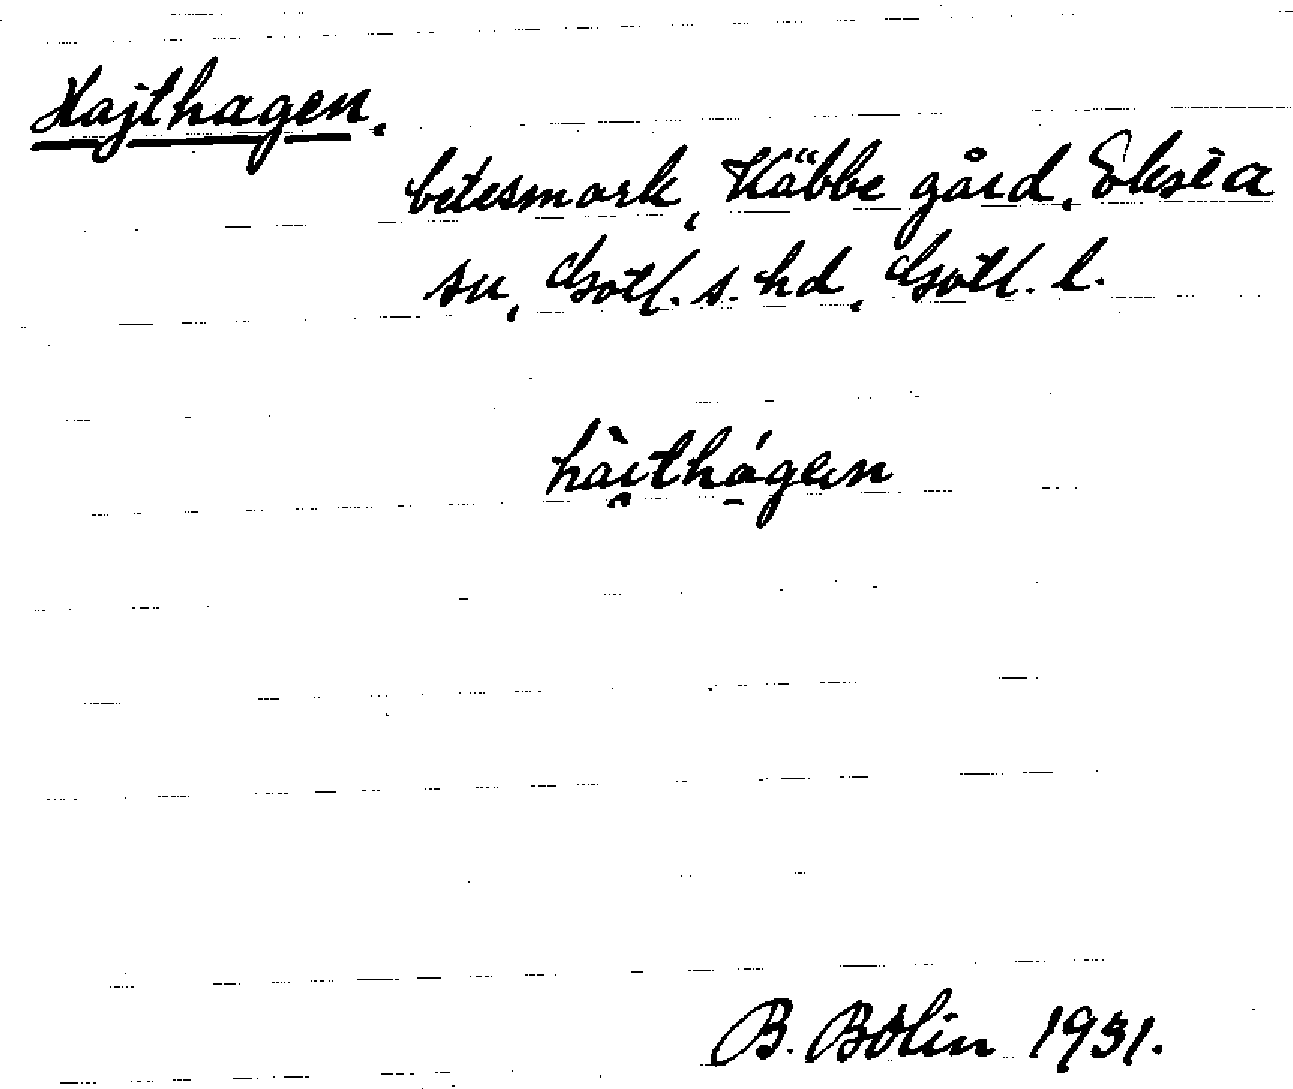 Hajthagen.
betesmark, Käbbe gård, Eksta
sn, Gotl. s. hd, Gotl. l.
hài̯thágen
B. Bolin 1931.